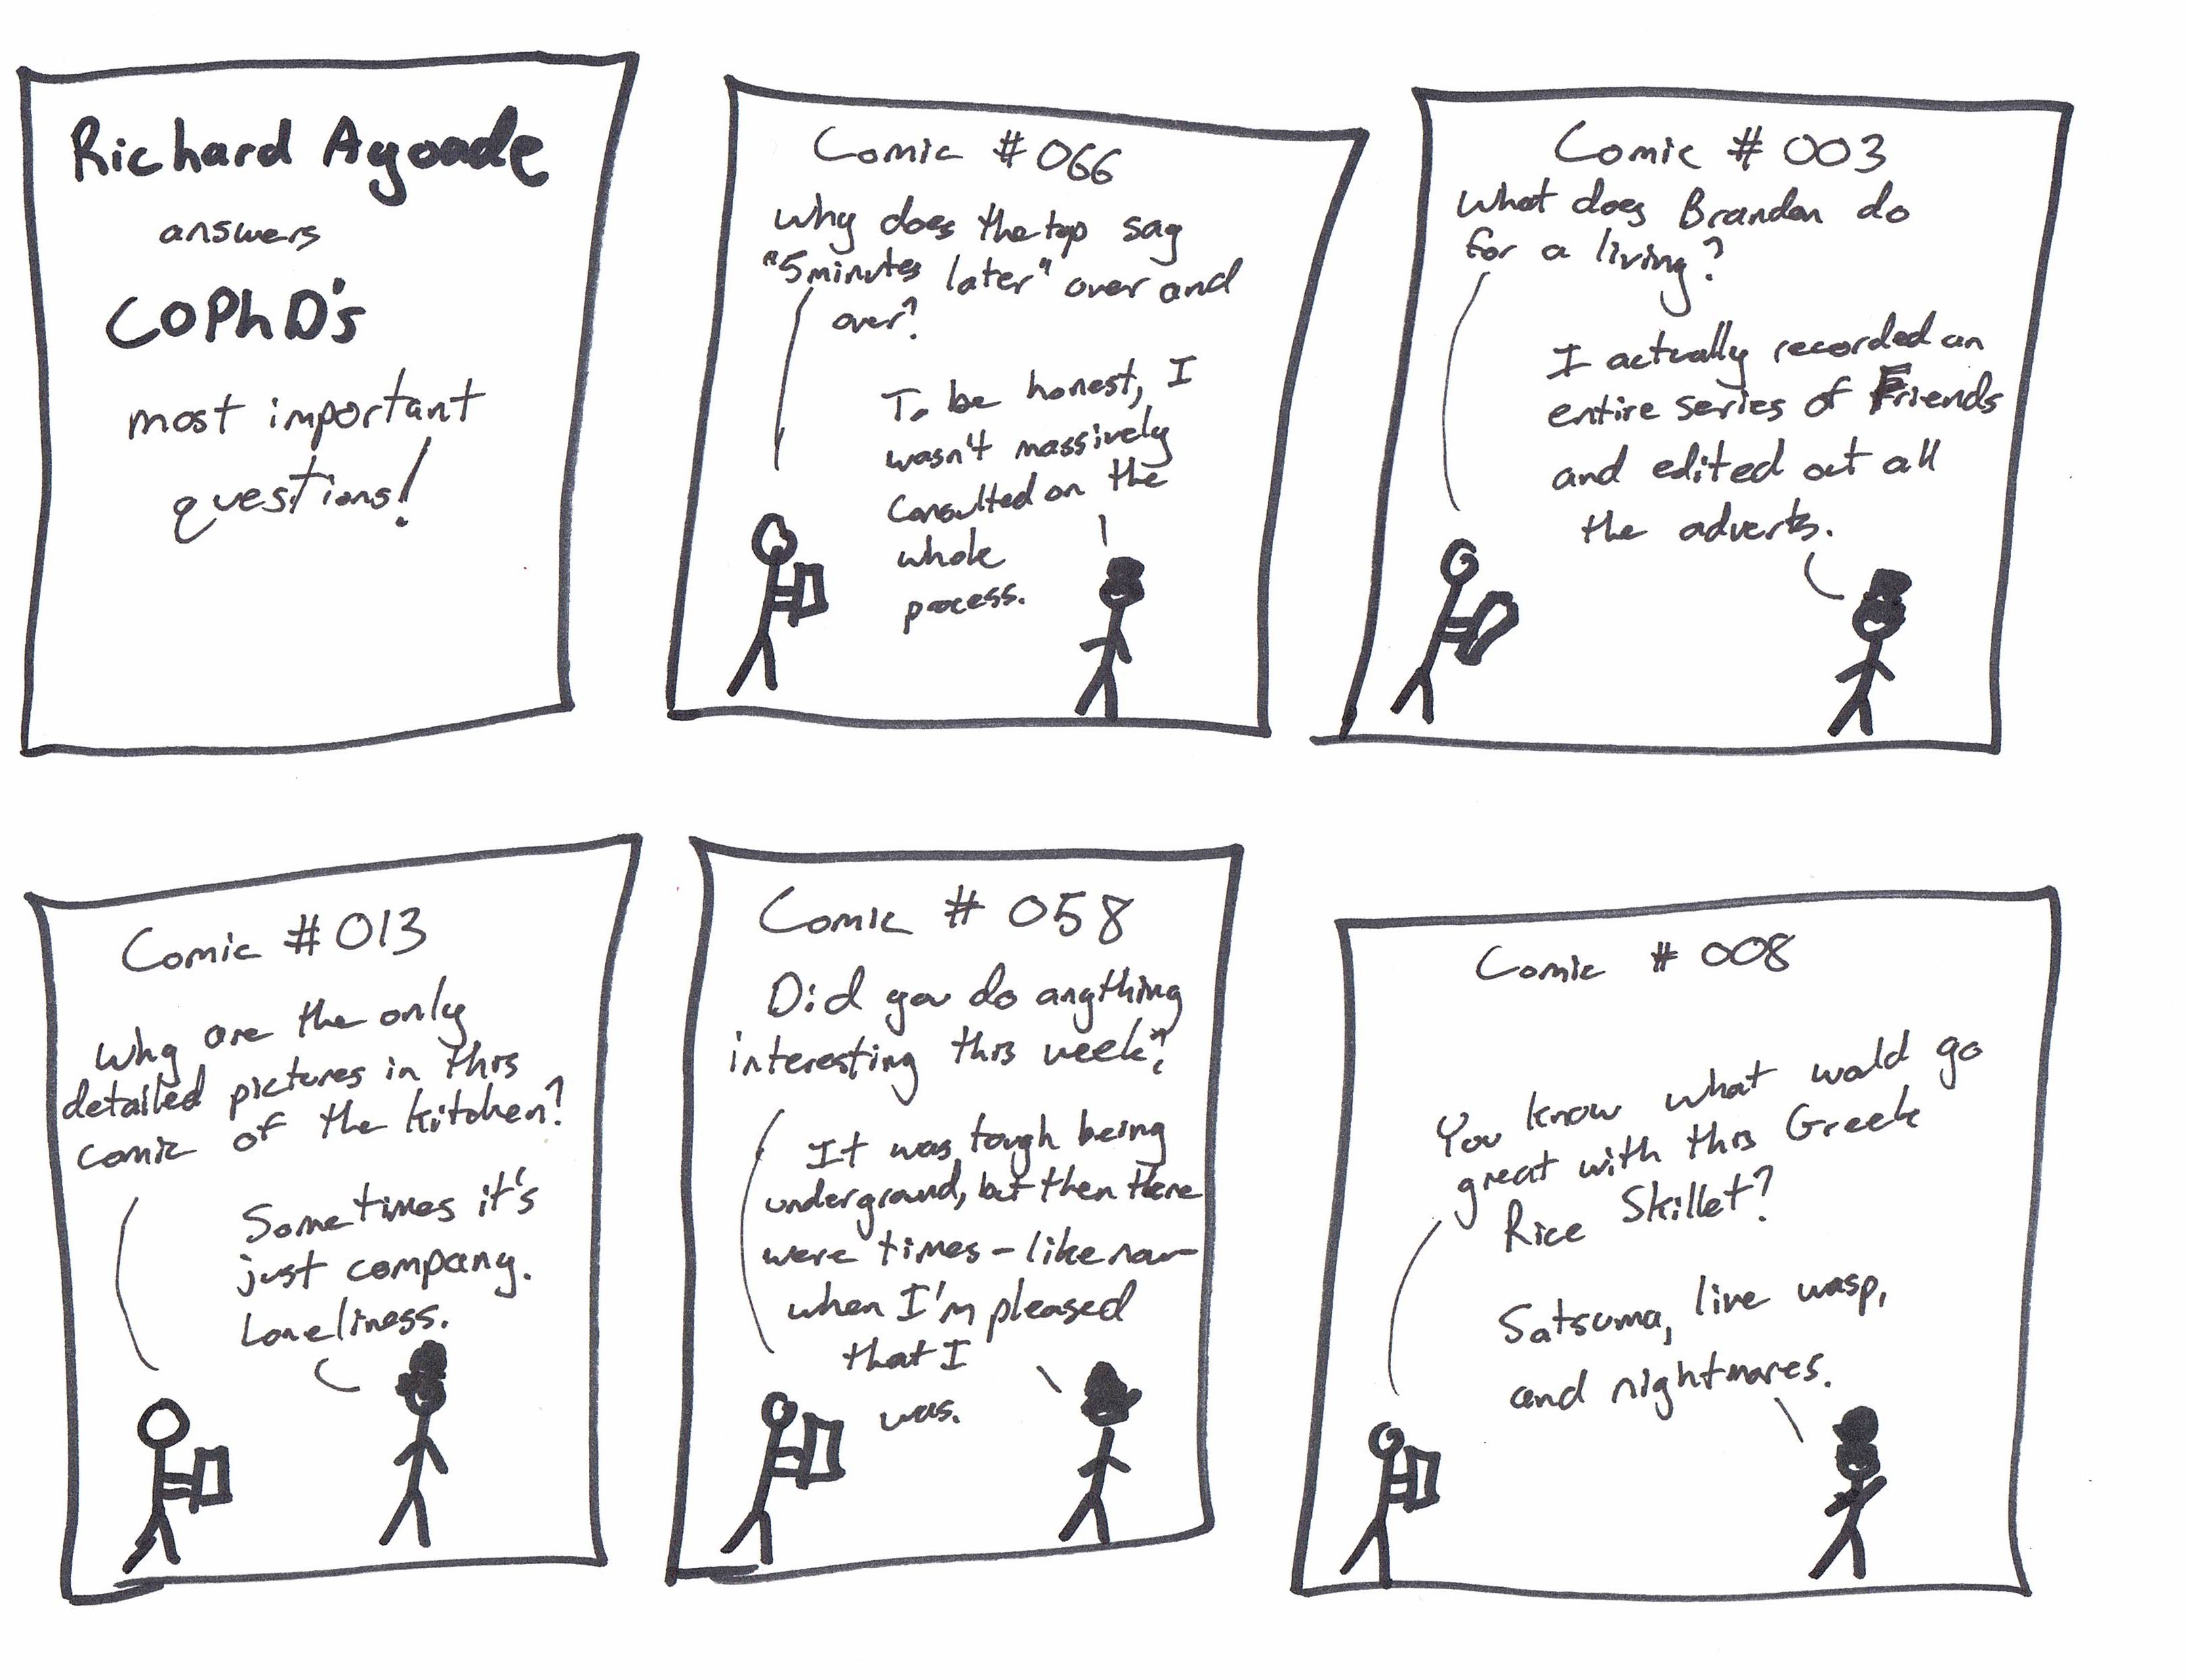 Richard Ayoade
answers
COPhD's
most important
questions!
Comic #066
Why does the top say
"5 minutes later" over and
over?
To be honest, I
wasn't massively
consulted on the
whole
process.
Comic #003
What does Brandon do
for a living?
I actually recorded an
entire series of Friends
and edited out all
the adverts.
Comic #013
Why are the only
detailed pictures in this
comic of the kitchen?
Sometimes it's
just company.
Loneliness.
Comic #058
Did you do anything
interesting this week?
It was tough being
underground, but then there
were times - like now -
when I'm pleased
that I
was.
Comic #008
You know what would go
great with this Greek
Rice Skillet?
Satsuma, live wasp,
and nightmares.